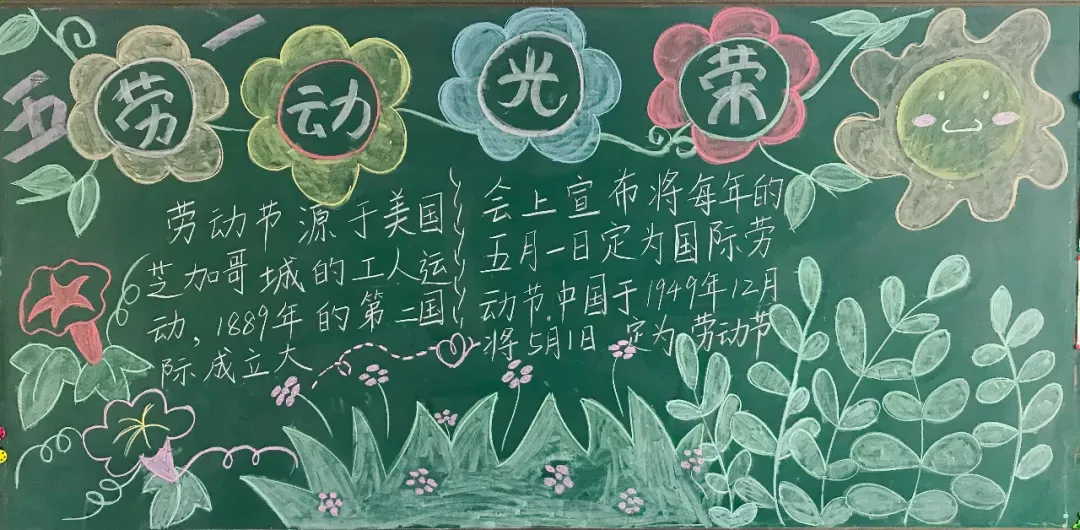 五一
劳动光荣
劳动节源于美国
芝加哥城的工人运
动,1889年的第二国
际成立大
会上宣布将每年的
五月一日定为国际劳
动节,中国于1949年12月
将5月1日定为劳动节